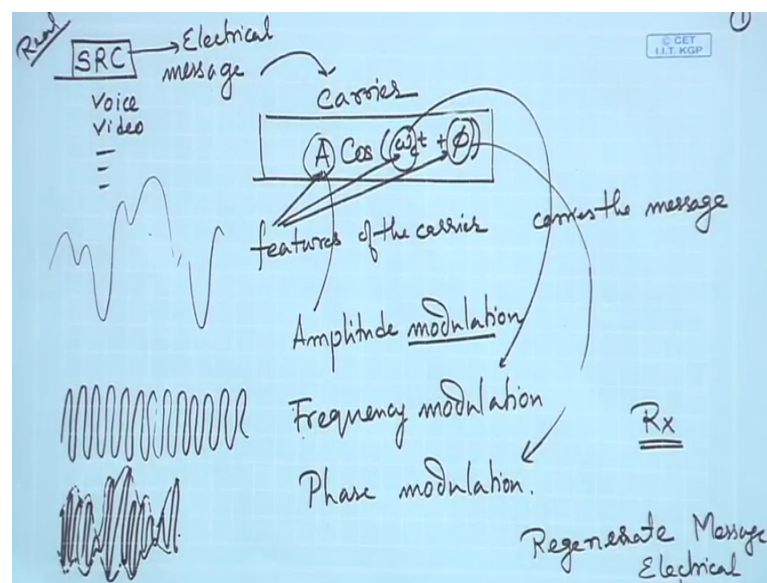 Read
①
SRC
Electrical
message
© CET
I.I.T. KGP
Voice
Video
Carrier
A Cos (ωct + φ)
features of the carrier
carries the message
Amplitude modulation
Frequency modulation
Rx
Phase modulation.
Regenerate Message
Electrical